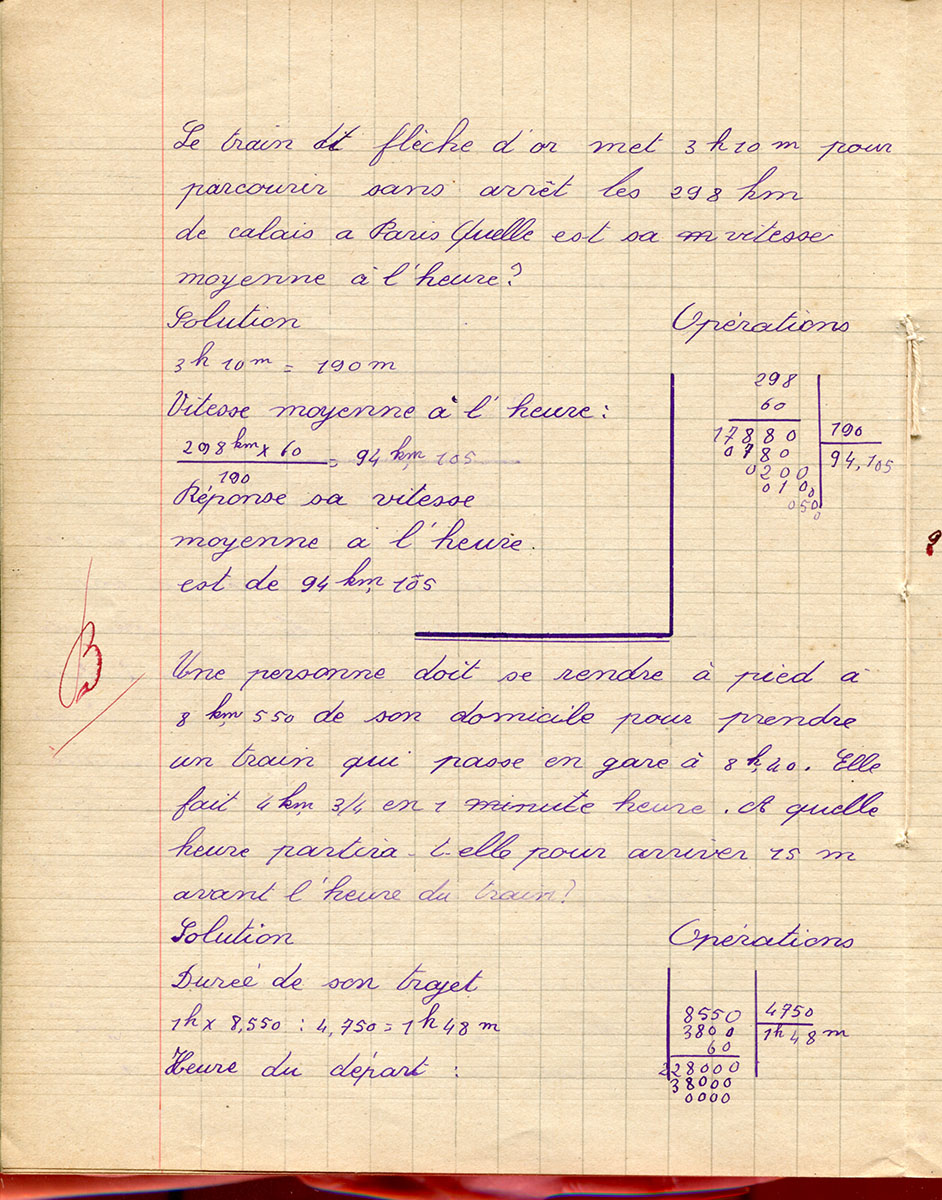 Le train flèche d'or met 3 h 10 m pour
parcourir sans arrêt les 298 km
de calais a Paris Quelle est sa m vitesse
moyenne à l'heure?
Solution
Opérations
3h 10m = 190 m
Vitesse moyenne à l'heure :
298 km x 60 = 94 km, 105
190
Réponse sa vitesse
moyenne a l'heure.
est de 94 km, 105
298
60
17880
190
0780
94,105
0200
0100
050
0
B
Une personne doit se rendre à pied à
8 km 550 de son domicile pour prendre
un train qui passe en gare à 8 h, 20. Elle
fait 4 km, 3/4 en 1 minute heure. A quelle
heure partira-t-elle pour arriver 15 m
avant l'heure du train?
Solution
Opérations
Durée de son trajet
1h x 8,550 : 4,750 = 1 h 48 m
Heure du départ :
8550
4750
3800
1h 48 m
60
228000
38000
0000